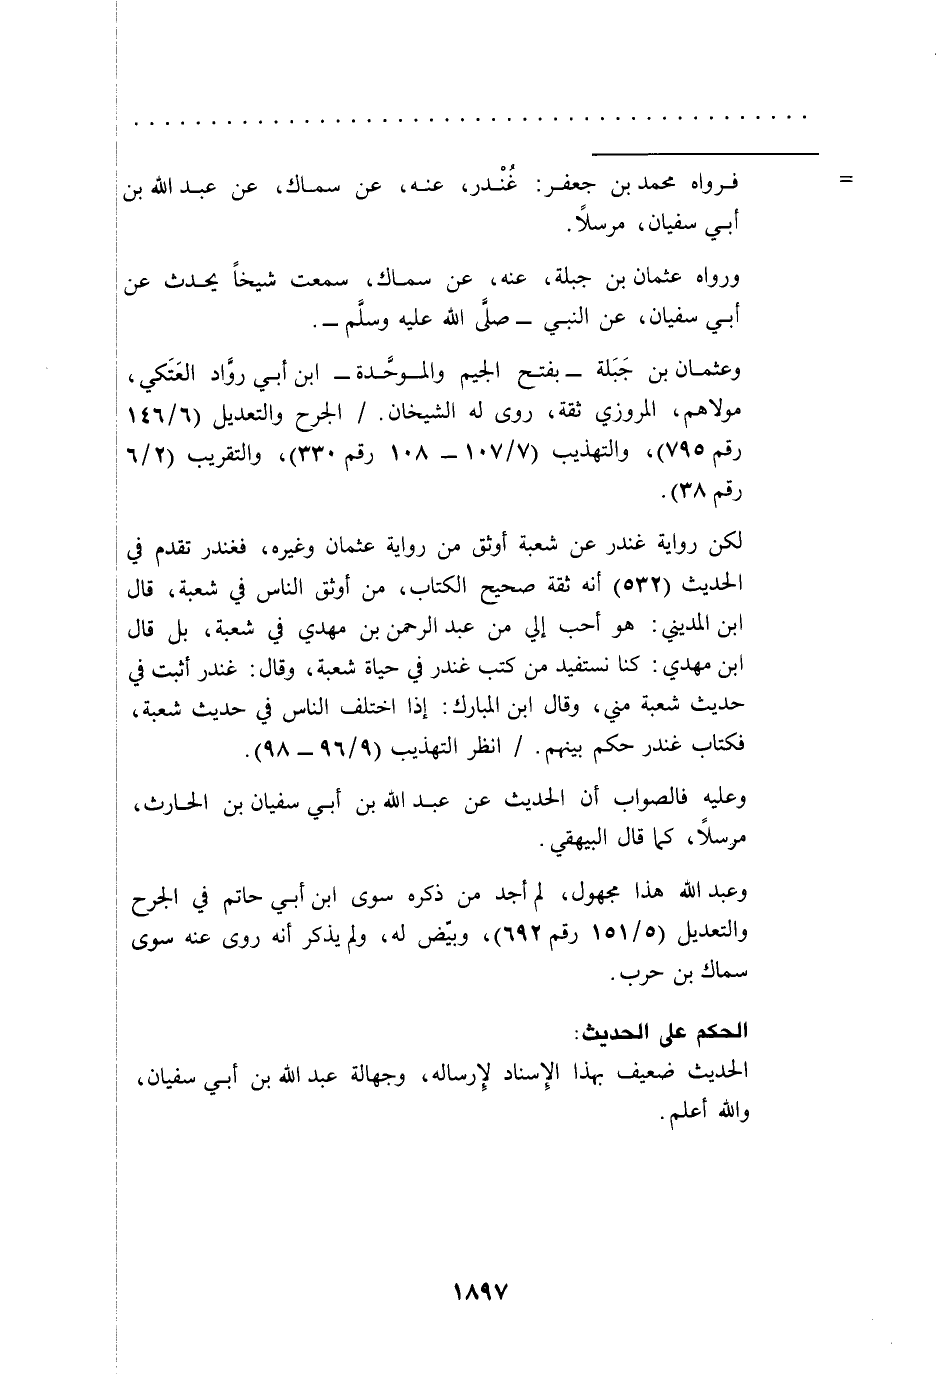 = فرواه محمد بن جعفر: غُنْدر، عنه، عن سماك، عن عبد الله بن
أبي سفيان، مرسلاً.
ورواه عثمان بن جبلة، عنه، عن سماك، سمعت شيخاً يحدث عن
أبي سفيان، عن النبي ــ صلَّى الله عليه وسلَّم ــ.
وعثمان بن جَبَلة ــ بفتح الجيم والموحَّدة ــ ابن أبي روَّاد العَتَكي،
مولاهم، المروزي ثقة، روى له الشيخان. / الجرح والتعديل (١٤٦/٦
رقم ٧٩٥)، والتهذيب (١٠٧/٧ ــ ١٠٨ رقم ٢٣٠)، والتقريب (٦/٢
رقم ٣٨).
لكن رواية غندر عن شعبة أوثق من رواية عثمان وغيره، فغندر تقدم في
الحديث (٥٣٢) أنه ثقة صحيح الكتاب، من أوثق الناس في شعبة، قال
ابن المديني: هو أحب إلي من عبد الرحمن بن مهدي في شعبة، بل قال
ابن مهدي: كنا نستفيد من كتب غندر في حياة شعبة، وقال: غندر أثبت في
حديث شعبة مني، وقال ابن المبارك: إذا اختلف الناس في حديث شعبة،
فكتاب غندر حكم بينهم. / انظر التهذيب (٩٦/٩ ــ ٩٨).
وعليه فالصواب أن الحديث عن عبد الله بن أبي سفيان بن الحارث،
مرسلاً، كما قال البيهقي.
وعبد الله هذا مجهول، لم أجد من ذكره سوى ابن أبي حاتم في الجرح
والتعديل (١٥١/٥ رقم ٦٩٢)، وبيّض له، ولم يذكر أنه روى عنه سوى
سماك بن حرب.
الحكم على الحديث:
الحديث ضعيف بهذا الإسناد لإرساله، وجهالة عبد الله بن أبي سفيان،
والله أعلم.
١٨٩٧